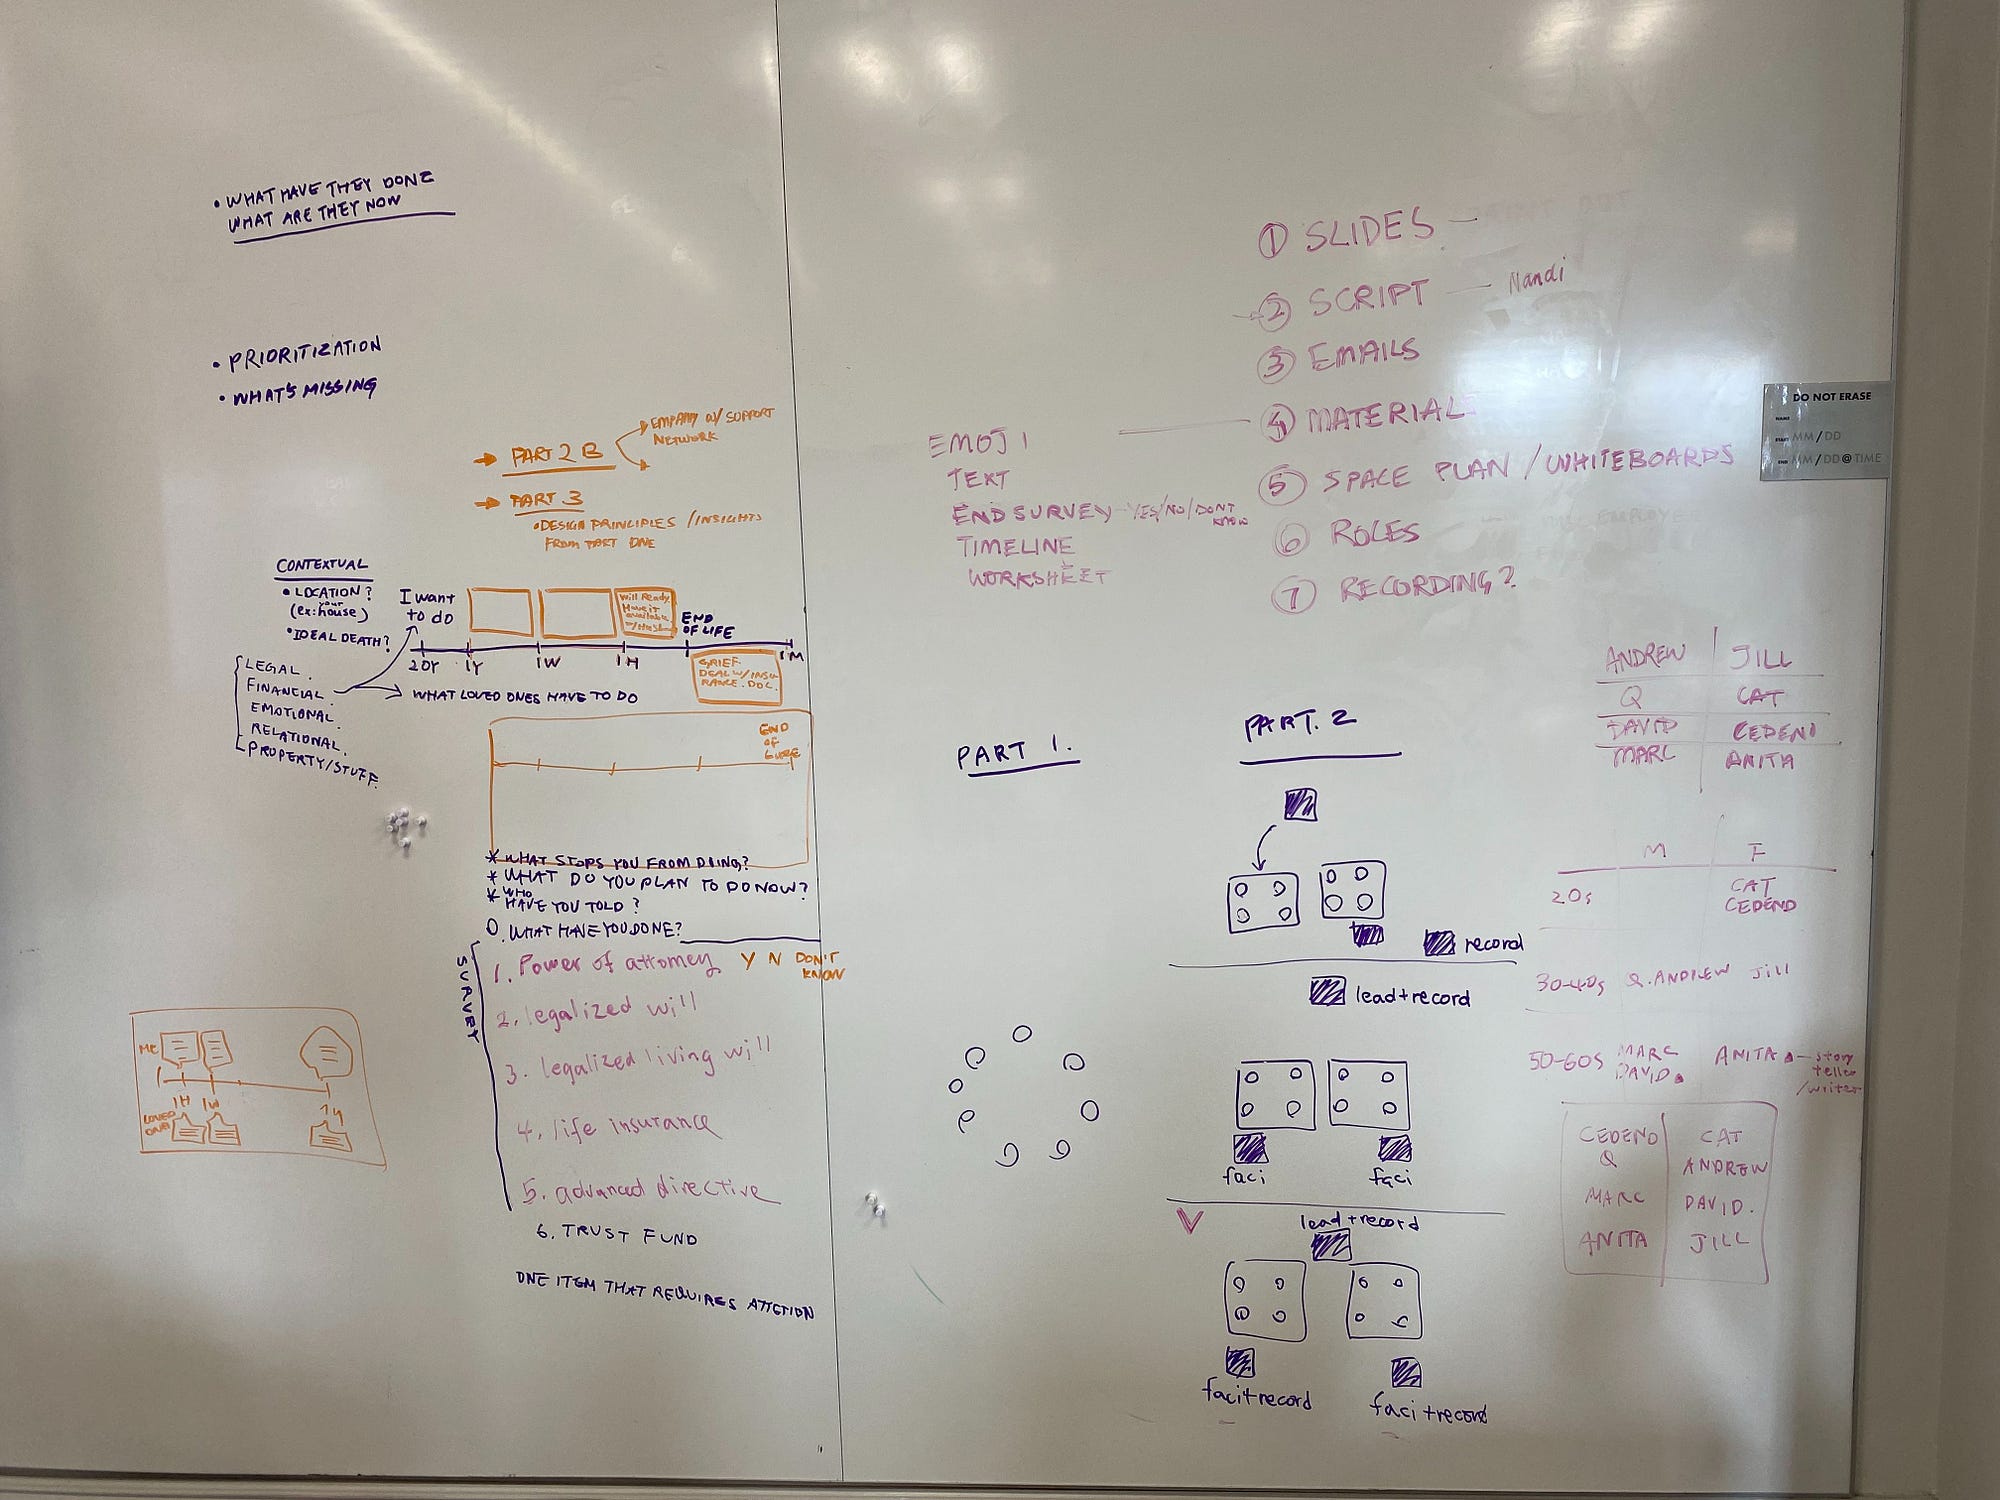 • WHAT HAVE THEY DONE
WHAT ARE THEY NOW
• PRIORITIZATION
• WHAT'S MISSING
→ PART 2 B
EMPATHY W/ SUPPORT
NETWORK
→ PART 3
• DESIGN PRINCIPLES / INSIGHTS
FROM PART ONE
CONTEXTUAL
• LOCATION?
(ex: your house)
• IDEAL DEATH?
LEGAL.
FINANCIAL.
EMOTIONAL.
RELATIONAL.
PROPERTY/STUFF.
I want
to do
Will Ready
Have it
available
END
OF LIFE
20Y
1Y
1W
1H
1M
GRIEF.
DEAL W/ INSU
RANCE. DOC.
WHAT LOVED ONES HAVE TO DO
END
OF
* WHAT STOPS YOU FROM DOING?
* WHAT DO YOU PLAN TO DO NOW?
* WHO
HAVE YOU TOLD?
0. WHAT HAVE YOU DONE?
SURVEY
1. Power of attorney Y N DON'T
KNOW
2. legalized will
3. legalized living will
4. life insurance
5. advanced directive
6. TRUST FUND
ONE ITEM THAT REQUIRES ATTETION
ME
1H 1W
LOVED
ONES
① SLIDES —
② SCRIPT — Nandi
③ EMAILS
④ MATERIALS
⑤ SPACE PLAN / WHITEBOARDS
⑥ ROLES
⑦ RECORDING?
EMOJI
TEXT
END SURVEY - YES/NO/DONT
KNOW
TIMELINE
WORKSHEET
DO NOT ERASE
NAME
START MM/DD
END MM/DD@TIME
PART 1.
PART. 2
record
lead+record
faci
faci
lead+record
faci+record
faci+record
ANDREW JILL
Q CAT
DAVID CEDENO
MARC ANITA
M F
20s CAT
CEDENO
30-40s Q. ANDREW Jill
50-60s MARC
DAVID
ANITA — story
teller
/writer
CEDENO CAT
Q ANDREW
MARC DAVID.
ANITA JILL